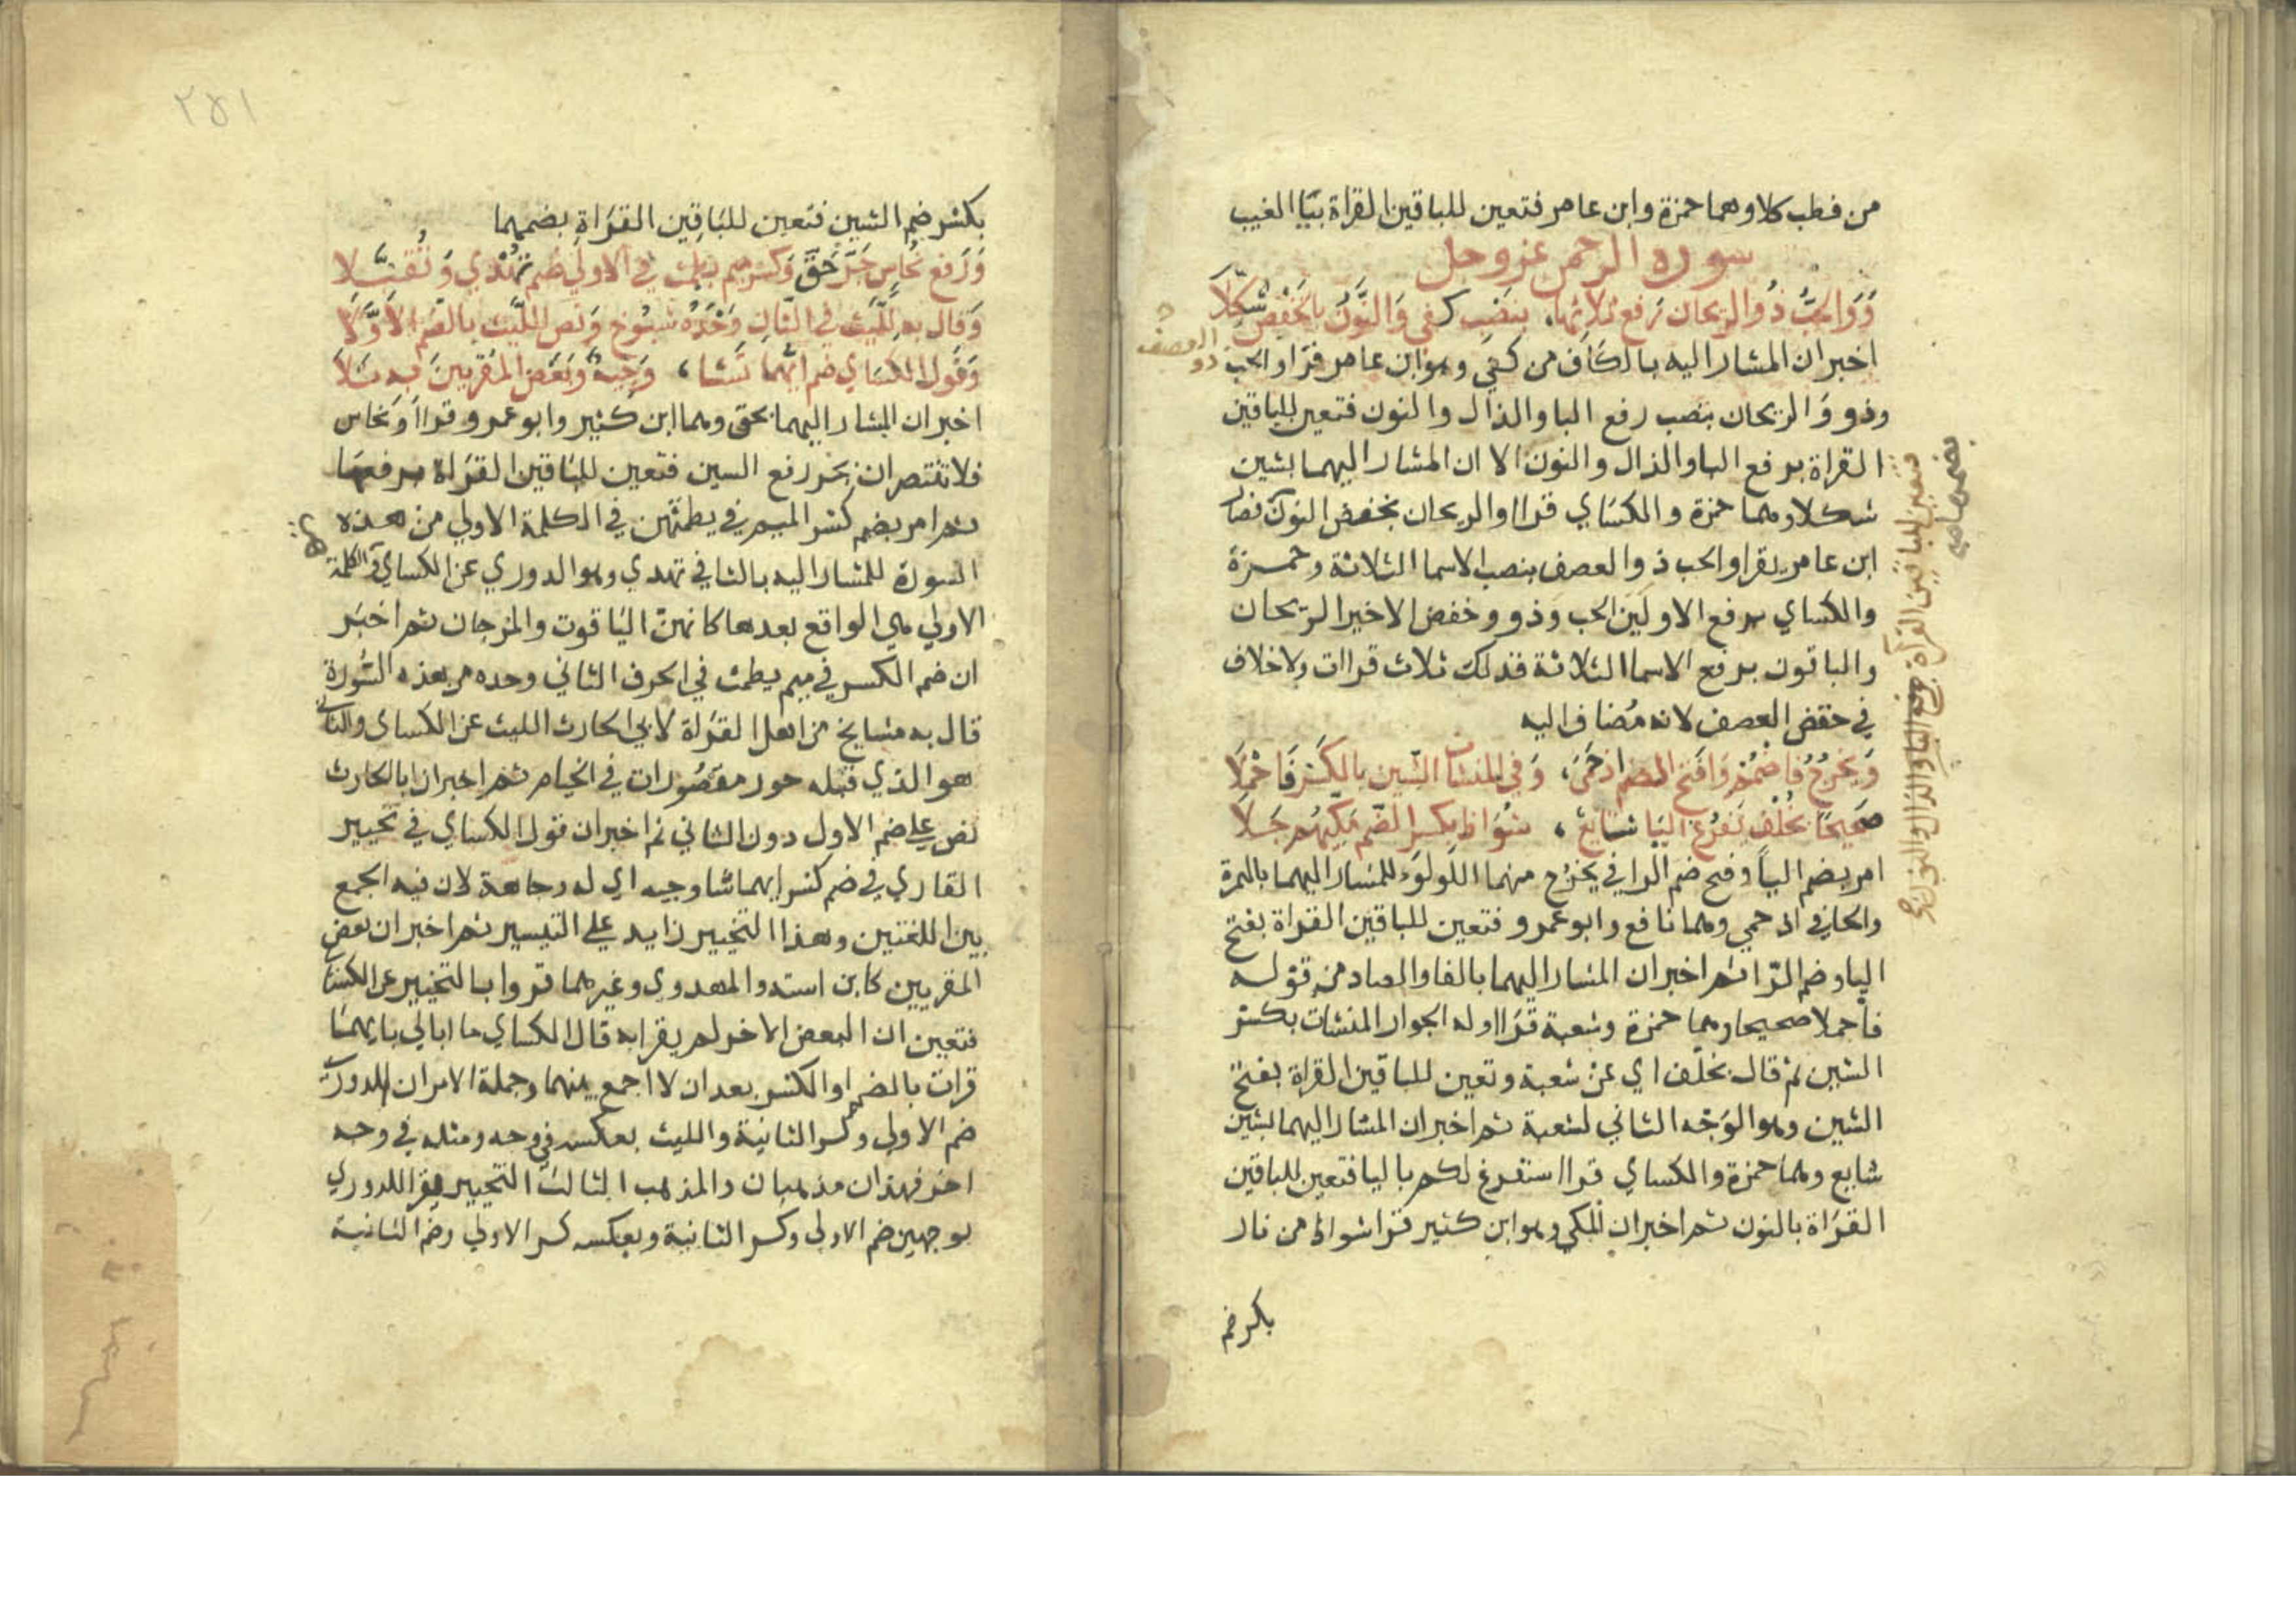 من فطب كلا وهما حمزة وابن عامر فتعين للباقين القراة بيا الغيب
سورة الرحمن عزوجل
وَوَالحَبُّ ذُو الريحان رَفع ثلاثها، بنصب كفى وَالنُّونُ بالخَفْضِ شُكِّلَا
اخبران المشار اليه بالكاف من كفى وهو ابن عامر قرا والحب ذو العصف
وذو وَالريحان بنصب رفع البا والذال والنون فتعين للباقين
القراة برفع البا والذال والنون الا ان المشار اليهما بشين
شكلا وهما حمزة والكساي قراا والريحان بخفض النون فصار
ابن عامر يقرا والحب ذوالعصف بنصب الاسما الثلاثة وحمزة
والكساي برفع الاولَين الحب وَذو وخفض الاخير الريحان
والباقون برفع الاسما الثلاثة فذلك ثلاث قراات ولاخلاف
في خفض العصف لانه مُضاف اليه
وَيخرُجُ فاضمُمْ وَافتح الضم اذ حمَى، وَفي المنشآت الشين بالكَسْر فَاحْمِلَا
صَحِيحًا بخُلْفٍ نَفرُغ اليَا شايع، شُوَاظ بكسر الضّم مَكِّيهُم جَلَا
امر بضم اليا وفتح ضم الرا في يخرُج منهما اللولوَ للمشار اليهما بالهمزة
والحا في اذ حمي وهما نافع وابو عمرو فتعين للباقين القراة بفتح
اليا وضم الرّا ثم اخبران المشار اليهما بالفا والصاد من قوله
فاحملا صحيحا وهما حمزة وشعبة قراا وله الجوار المنشات بكسر
الشين ثم قال بخلف اي عن شعبة وتعين للباقين القراة بفتح
الشين وهو الوَجْه الثاني لشعبة ثم اخبران المشار اليهما بشين
شايع وهما حمزة والكساي قراا سنفرغ لكم باليا فتعين للباقين
القراة بالنون ثم اخبران المكي وهو ابن كثير قرا شواظ من نار
بكسر ضم
فتعين للباقين القرآة برفع البا والذال والنون
٢٥١
بكسر ضم الشين فتعين للباقِين القرَاةِ بضمهما
وَرَفع نُحاس جَرّ حَقّ وَكسرميم يطمث في الاولى ضم تهْدي وَتُقبَلا
وَقال به لِلَّيْثِ في الثّانِ وَحْدَهُ شيُوخ وَنَص اللَّيْث بالضّم الاوَّلا
وَقول الكساي ضم ايّهما تَشا، وَجِيهٌ وَبَعْض المقريينَ بهِ تَلَا
اخبران المشار اليهما بحق وهما ابن كثير وابو عمرو قراا ونحاس
فلا تنتصران بجر رفع السين فتعين للباقين القراة برفعها
ثم امر بضم كسر الميم في يطمثهن في الكلمة الاولي من هذه
السورة للمشار اليه بالتا في تهدي وهو الدوري عن الكساي والكلمة
الاولي هي الواقع بعدها كانهن اليَاقوت والمرجان ثم اخبَر
ان ضم الكسر في ميم يطمث في الحرف الثاني وحده من هذه السُّورة
قال به مشايخ من اهل القراة لابي الحارث الليث عن الكساي والثاني
هو الذي قبله حور مقصُورات في الخيام ثم اخبران ابا الحارث
نص علي ضم الاول دون الثاني ثم اخبران قول الكساي في تخيير
القاري في ضم كسر ايهما شا وجيه اي له وجاهة لان فيه الجمع
بين اللغتين وهذا التخيير زايد علي التيسير ثم اخبران بعض
المقريين كابن اشته والمهدوي وغيرهما قروا بالتخيير عن الكسا
فتعين ان البعض الاخر لم يقرا به قال الكساي ما ابالي بايهما
قرات بالضم اوالكسر بعد ان لا اجمع بينهما وجملة الامران للدوري
ضم الاولي وكسر الثانية والليث بعكسه في وجه ومثله في وجه
اخر فهذان مذهبان والمذهب الثالث التخيير فيقرا للدوري
بوجهين ضم الاولي وكسر الثانية وبعكسه كسر الاولي وضم الثانية